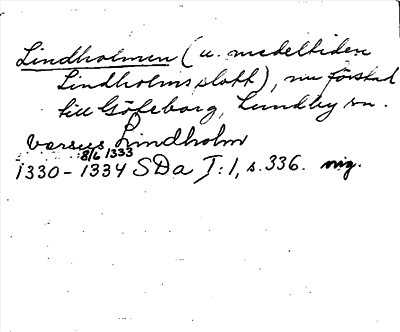 Lindholmen (u. medeltiden
Lindholms slott), nu förstad
till Göteborg, Lundby sn.
Varsus Lindholm
8/6 1333
1330-1334 SDa I:1, s. 336.